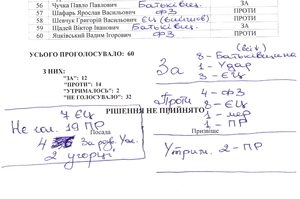 56 Чучка Павло Павлович Батьківщ. ЗА
57 Шафарь Ярослав Васильович ФЗ ПРОТИ
58 Шевчук Григорій Васильович ЄЦ ПРОТИ
59 Щадей Віктор Іванович Батьківщ. ЗА
60 Яцківський Вадим Ігорович ФЗ ПРОТИ
УСЬОГО ПРОГОЛОСУВАЛО: 60
З НИХ:
"ЗА": 12
"ПРОТИ": 14
"УТРИМАЛОСЬ": 2
"НЕ ГОЛОСУВАЛО": 32
За
8 - Батьківщина
1 - Удар
3 - ЄЦ
Проти
4 - ФЗ
8 - ЄЦ
1 - мер
1 - ПР
РІШЕННЯ НЕ ПРИЙНЯТО
7 ЄЦ
Не гол. 19 ПР
Посада
Прізвище
4 За рідн. Уж.
2 угорці
Утрим. 2 - ПР